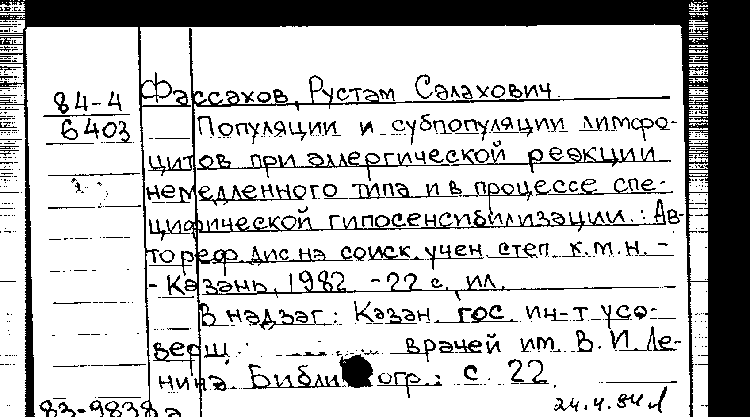 84-4
6403
Фассахов, Рустэм Салахович
Популяции и субпопуляции лимфо-
цитов при аллергической реакции
немедленного типа и в процессе спе-
цифической гипосенсибилизации.: Ав-
тореф. дис на соиск. учен. степ. к.м.н. -
- Казань, 1982. - 22 с., ил.
В надзаг: Казан. гос. ин-т усо-
верш. врачей им. В. И. Ле-
нина. Библиогр.: с. 22.
83-9838а
24.4.84